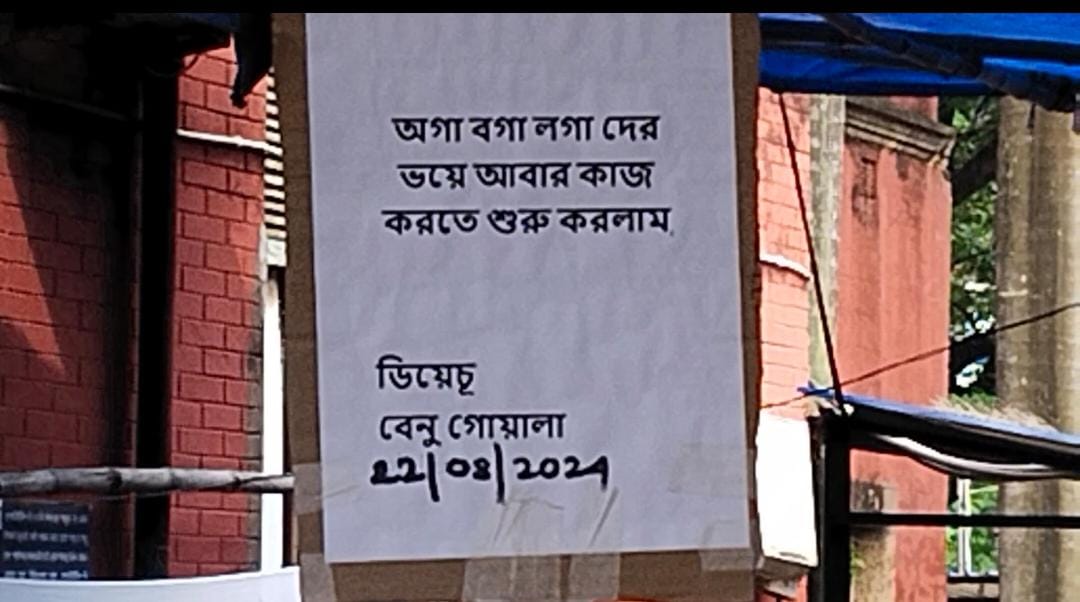 অগা বগা লগা দের
ভয়ে আবার কাজ
করতে শুরু করলাম
ডিয়েচূ
বেনু গোয়ালা
22/08/2024